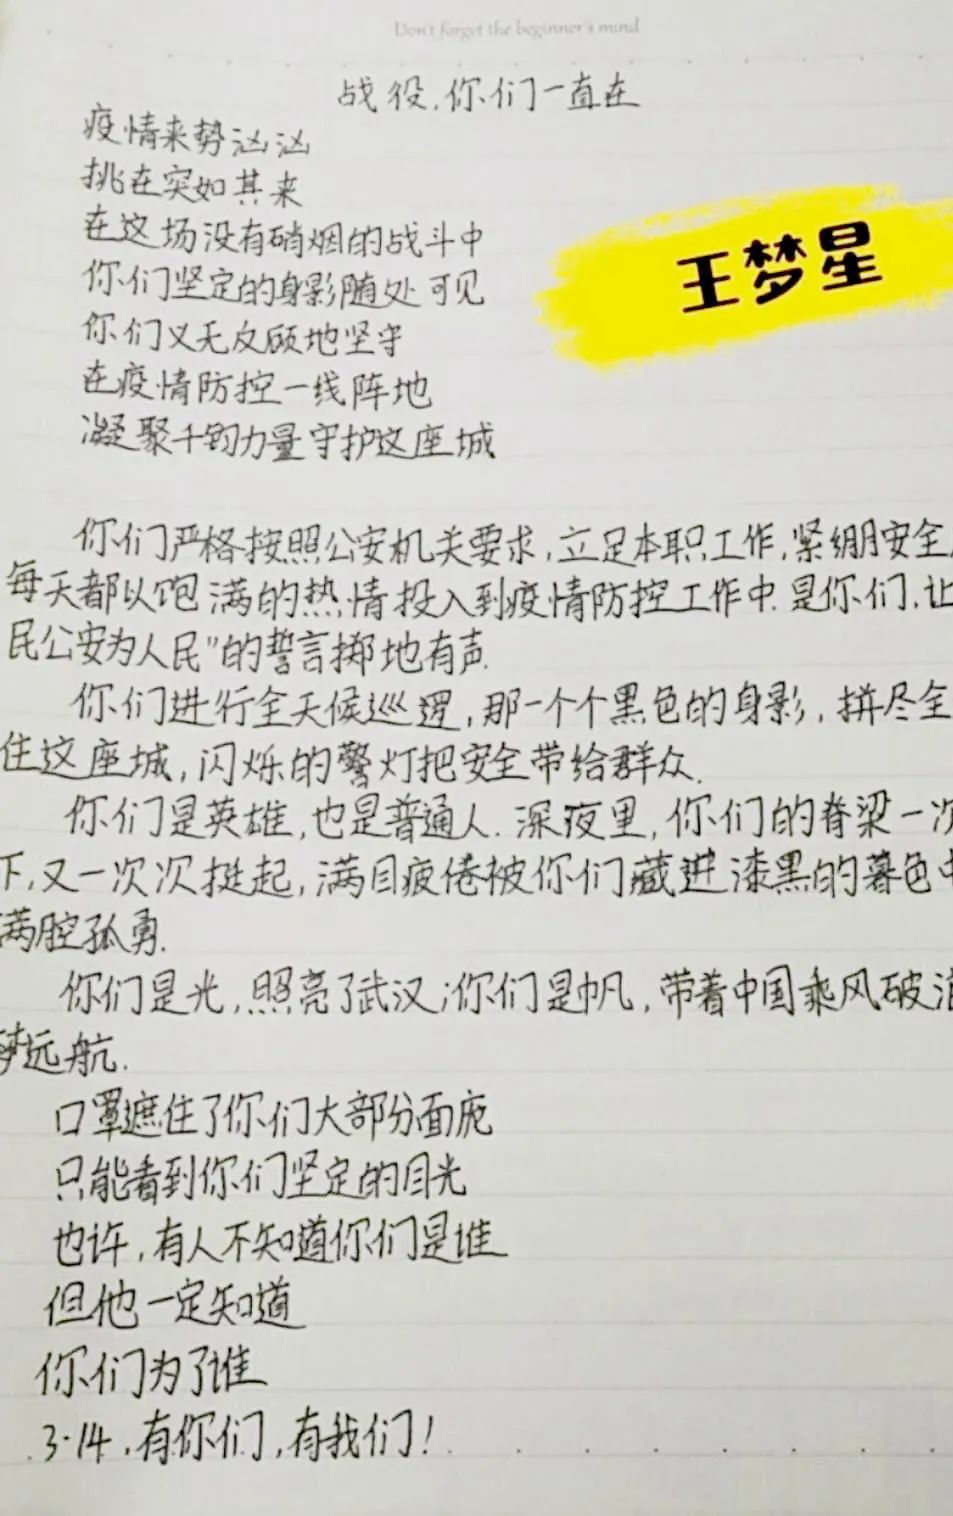 Don't forget the beginner's mind
战役,你们一直在
疫情来势汹汹
挑在突如其来
在这场没有硝烟的战斗中
王梦星
你们坚定的身影随处可见
你们义无反顾地坚守
在疫情防控一线阵地
凝聚千钧力量守护这座城
你们严格按照公安机关要求,立足本职工作,紧绷安全
每天都以饱满的热情投入到疫情防控工作中.是你们,让
民公安为人民”的誓言掷地有声.
你们进行全天候巡逻,那一个个黑色的身影,拼尽全
住这座城,闪烁的警灯把安全带给群众.
你们是英雄,也是普通人.深夜里,你们的脊梁一次
下,又一次次挺起,满目疲倦被你们藏进漆黑的暮色中
满腔孤勇.
你们是光,照亮了武汉;你们是帆,带着中国乘风破浪
梦远航.
口罩遮住了你们大部分面庞
只能看到你们坚定的目光
也许,有人不知道你们是谁
但他一定知道
你们为了谁
3·14,有你们,有我们!